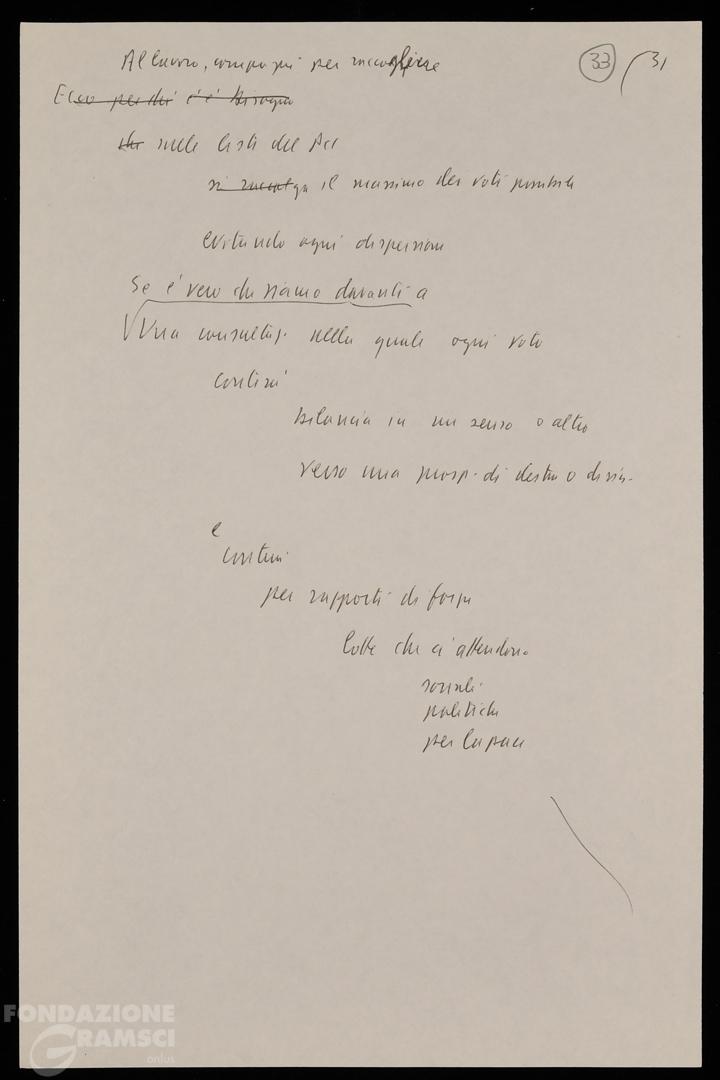 Al lavoro, compagni per raccogliere
33 31
Ecco perché c'è bisogno
che nelle liste del PCI
si raccolga il massimo dei voti possibili
evitando ogni dispersione
Se è vero che siamo davanti a
Una consultaz. nella quale ogni voto
conterà
bilancia in un senso o altro
verso una prosp. di destra o di sin.
e
conterà
per rapporti di forza
lotte che ci attendono
sociali
politiche
per la pace
FONDAZIONE
GRAMSCI
onlus